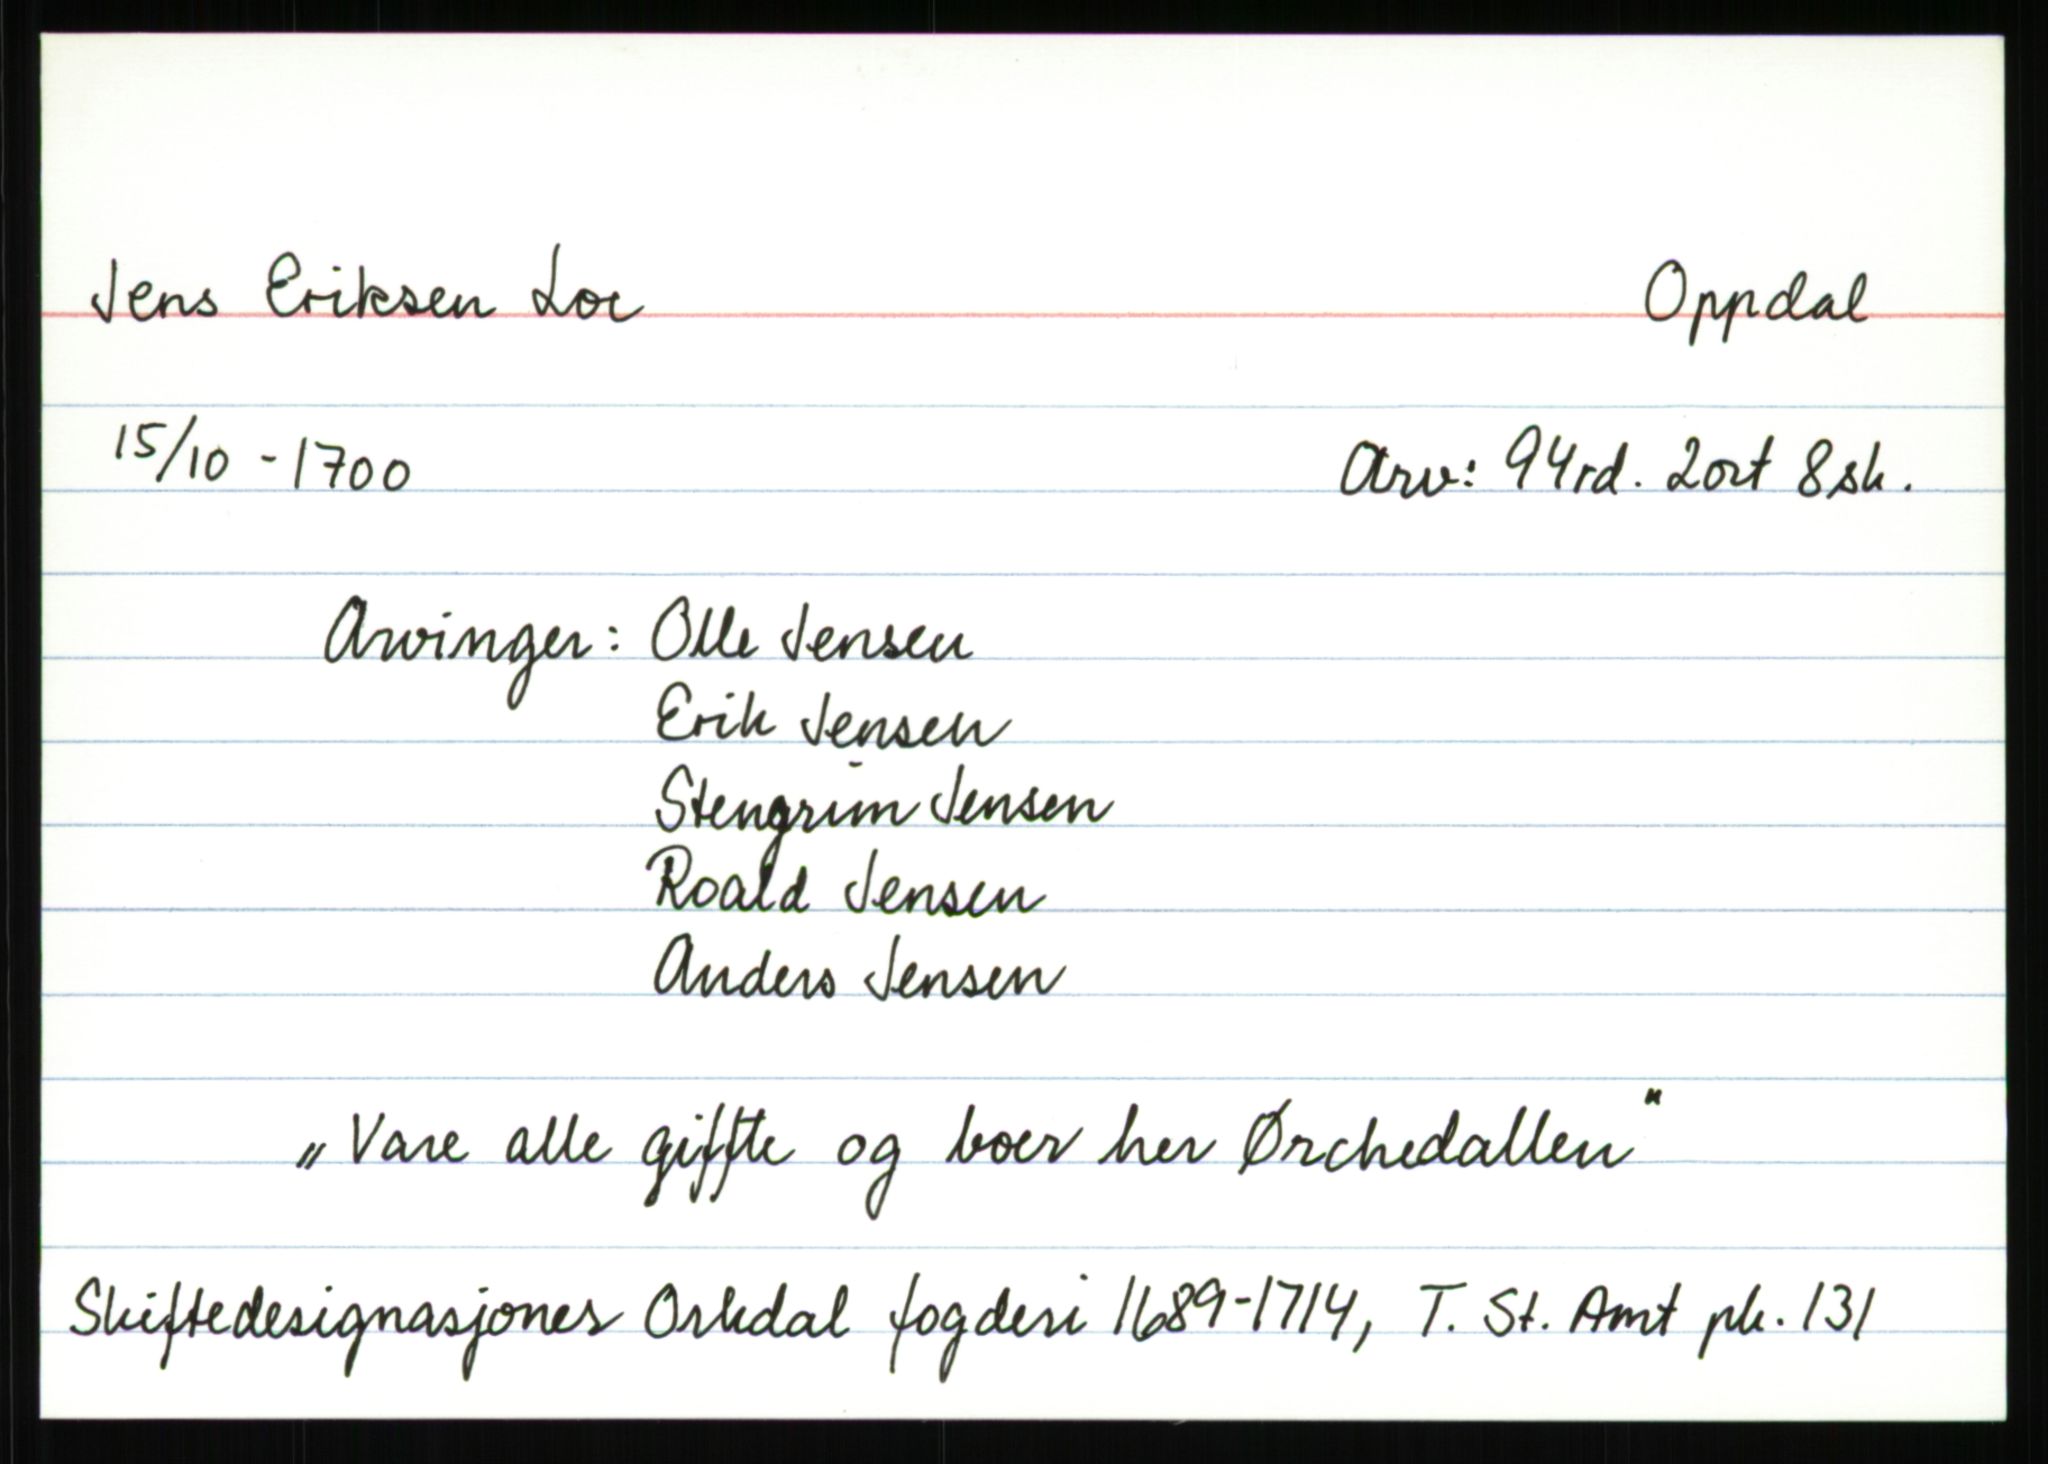 Jens Eriksen Loe Oppdal
15/10 - 1700 Arv: 94rd. 2ort 8sk.
Arvinger: Olle Jensen
Erik Jensen
Stengrim Jensen
Roald Jensen
Anders Jensen
„Vare alle giffte og boer her Ørchedallen"
Skiftedesignasjoner Orkdal fogderi 1689-1714, T. St. Amt pk. 131